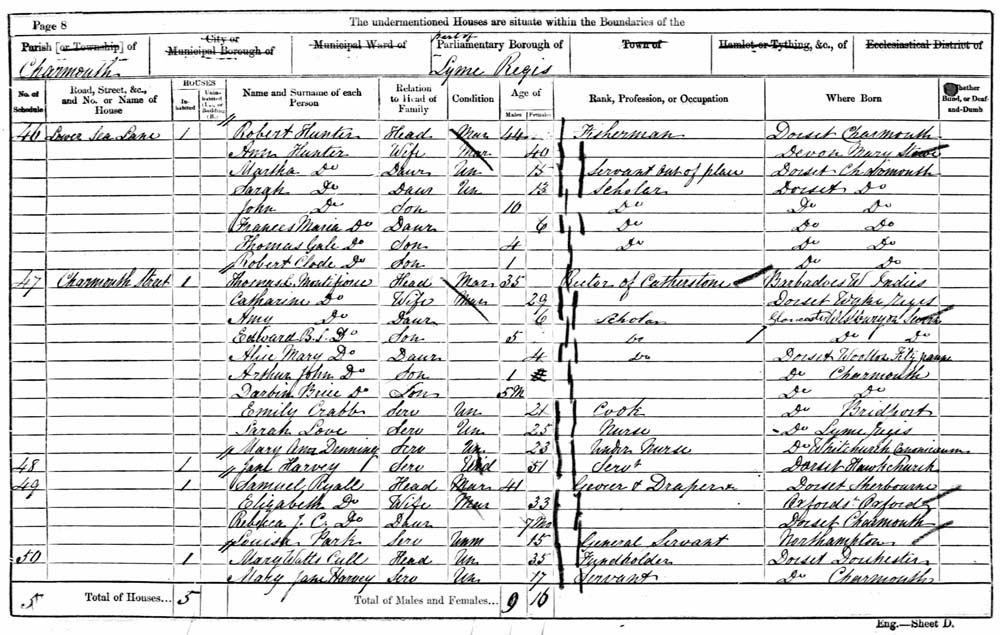 Page 8 The undermentioned Houses are situate within the Boundaries of the
Parish [or Township] of City or Municipal Borough of Municipal Ward of part of Parliamentary Borough of Town of Hamlet or Tything, &c., of Ecclesiastical District of
Charmouth Lyme Regis
No. of Schedule Road, Street, &c., and No. or Name of House HOUSES Inhabited Uninhabited (U.), or Building (B.) Name and Surname of each Person Relation to Head of Family Condition Age of Males Females Rank, Profession, or Occupation Where Born Whether Blind, or Deaf-and-Dumb
46 Lower Sea Lane 1 Robert Hunter Head Mar 44 Fisherman Dorset Charmouth
Ann Hunter Wife Mar 40 Devon Mary
Martha Do Daur Un 15 Servant out of place Dorset Charmouth
Sarah Do Daur Un 13 Scholar Dorset Do
John Do Son 10 Do Do Do
Frances Maria Do Daur 6 Do Do Do
Thomas Gale Do Son 4 Do Do Do
Robert Clode Do Son 1 Do Do
47 Charmouth Street 1 Montefiore Head Mar 35 Rector of Catherstone Barbadoes W Indies
Catharine Do Wife Mar 29 Dorset Wyke Regis
Amy Do Daur 6 Scholar Gloucester
Edward B. S. Do Son 5 Do Do Do
Alice Mary Do Daur 4 Do Dorset Wootton Fitzpaine
Arthur John Do Son 1 Do Charmouth
Durbin Brice Do Son 5 M Do Do
Emily Crabb Serv Un 21 Cook Do Bridport
Sarah Love Serv Un 25 Nurse Do Lyme Regis
Mary Ann Denning Serv Un 23 Under Nurse Do Whitchurch Canonicorum
48 1 Jane Harvey Serv Wid 51 Servt Dorset Hawkchurch
49 1 Samuel Ryall Head Mar 41 Grocer & Draper Dorset Sherbourne
Elizabeth Do Wife Mar 33 Oxfords Oxford
Rebecca J. C. Do Daur 7 Mo Dorset Charmouth
Louisa Park Serv Unm 15 General Servant Northampton
50 1 Mary Watts Cull Head Un 35 Fundholder Dorset Dorchester
Mary Jane Harvey Serv Un 17 Servant Do Charmouth
5 Total of Houses... 5 Total of Males and Females... 9 16
Eng.—Sheet D.